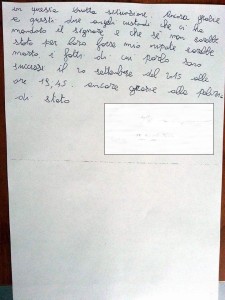 in questa brutta situazione. Ancora grazie
a questi due angeli custodi che ci ha
mandato il signore e che se non sarebbe
stato per loro forse mio nipote sarebbe
morto i fatti di cui parlo sono
successi il 20 settembre del 2015 alle
ore 19,45. ancora grazie alla polizia
di stato